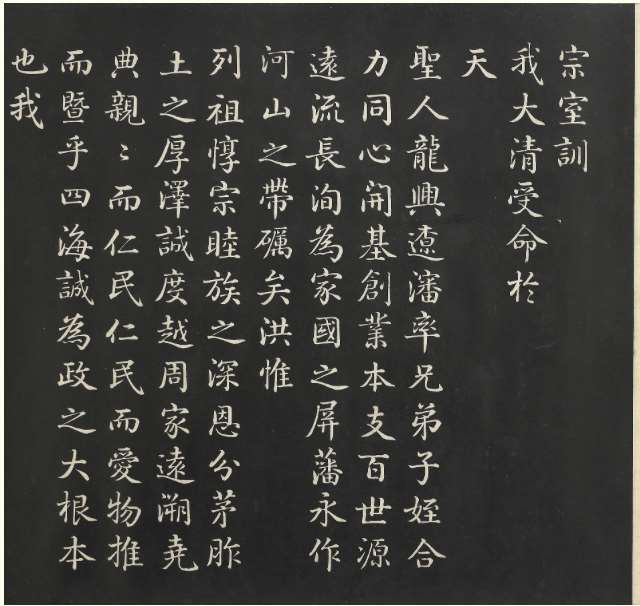 宗室訓
我大清受命於
天
聖人龍興遼瀋率兄弟子姪合
力同心開基創業本支百世源
遠流長洵為家國之屏藩永作
河山之帶礪矣洪惟
列祖惇宗睦族之深恩分茅胙
土之厚澤誠度越周家遠溯堯
典親〻而仁民仁民而愛物推
而暨乎四海誠為政之大根本
也我